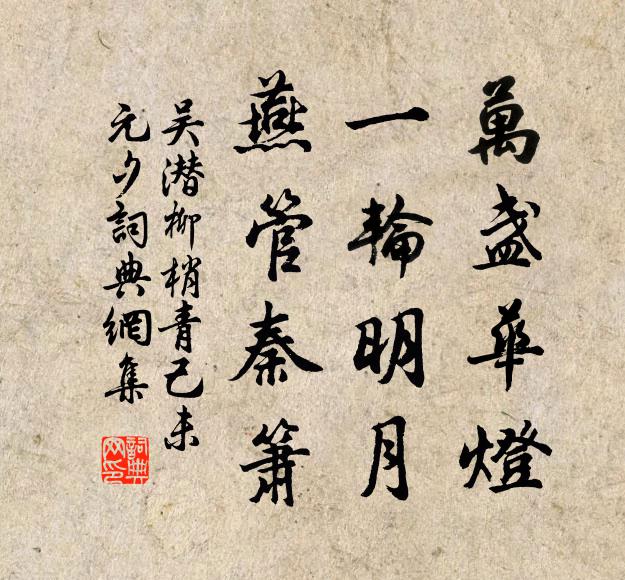 萬盞華燈
一輪明月
燕管秦簫
吳潛柳梢青己未
元夕詞典網集
詞典網印